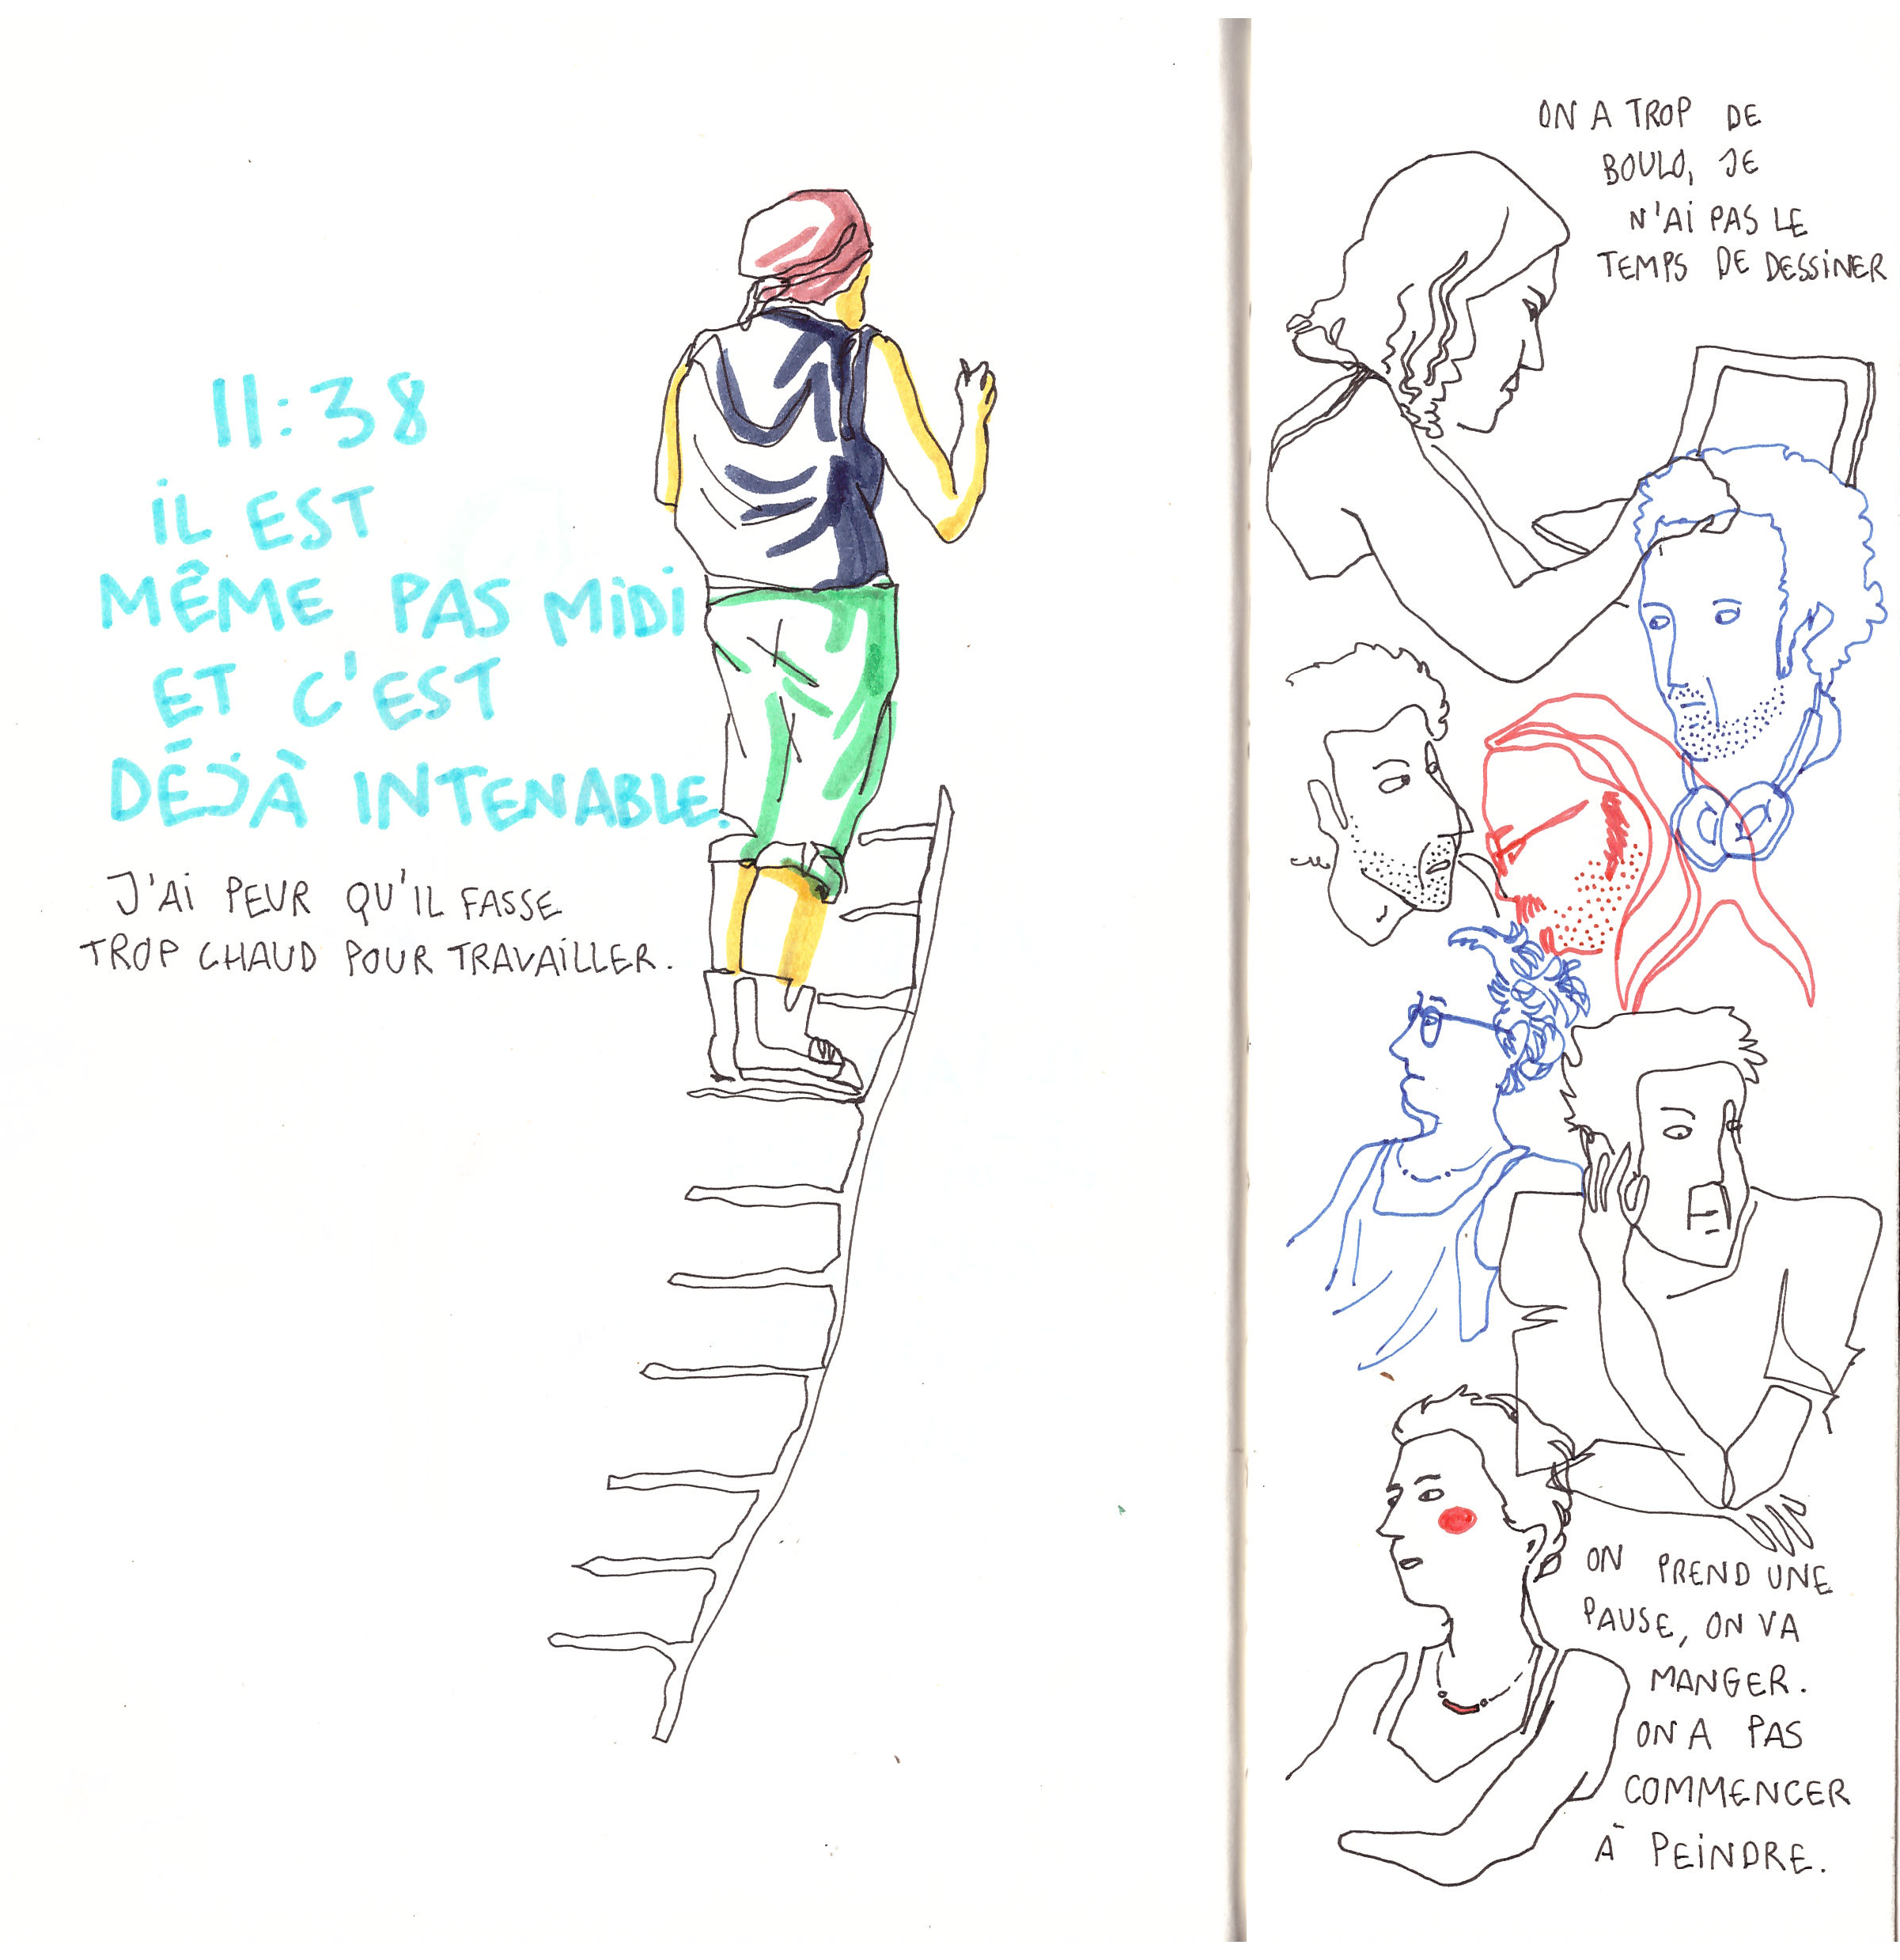 11:38
iL EST
MÊME PAS MiDi
ET C'EST
DÉJÀ INTENABLE.
J'Ai PEUR QU'iL FASSE
TROP CHAUD POUR TRAVAiLLER.
ON A TROP DE
BOULO, JE
N'Ai PAS LE
TEMPS DE DESSiNER
ON PREND UNE
PAUSE, ON VA
MANGER.
ON A PAS
COMMENCER
À PEiNDRE.